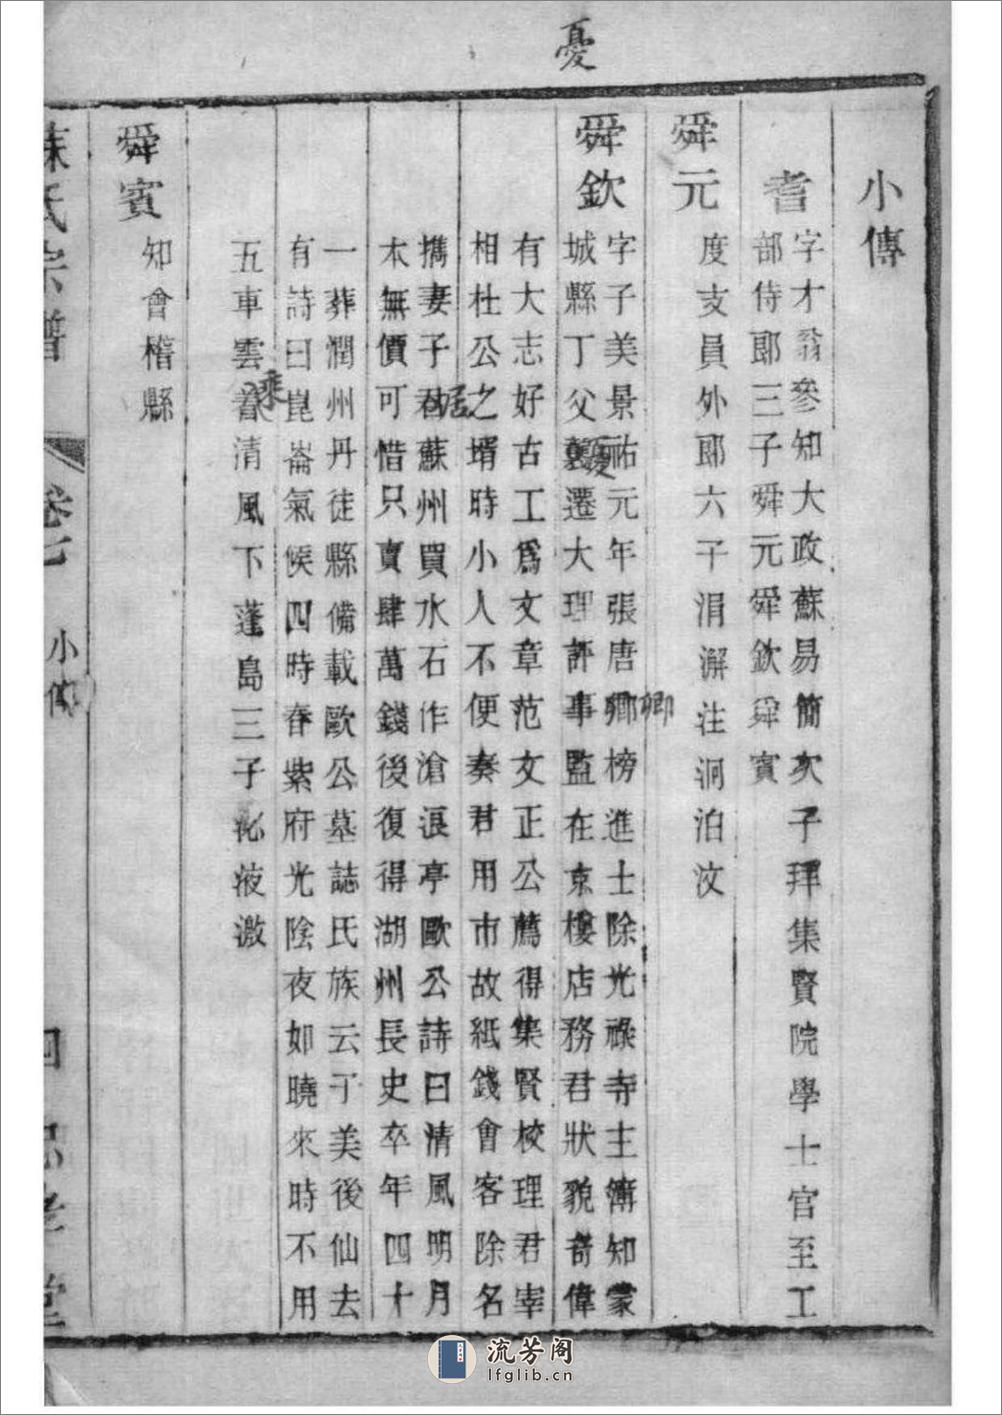 憂
小傳
耆
字才翁參知大政蘇易簡次子拜集賢院學士官至工
部侍郎三子舜元舜欽舜賓
舜元
度支員外郎六子涓澥注洞泊汶
舜欽
字子美景祐元年張唐卿榜進士除光祿寺主簿知蒙
城縣丁父憂遷大理評事監在京樓店務君狀貌奇偉
有大志好古工為文章范文正公薦得集賢校理君宰
相杜公之壻時小人不便奏君用市故紙錢會客除名
攜妻子居蘇州買水石作滄浪亭歐公詩曰清風明月
本無價可惜只賣肆萬錢後復得湖州長史卒年四十
一葬潤州丹徒縣備載歐公墓誌氏族云子美後仙去
有詩曰崑崙氣候四時春紫府光陰夜如曉來時不用
五車雲乘清風下蓬島三子泌液激
舜賓
知會稽縣
蘇氏宗譜
卷七
小傳
四
堂
流芳阁
lfglib.cn